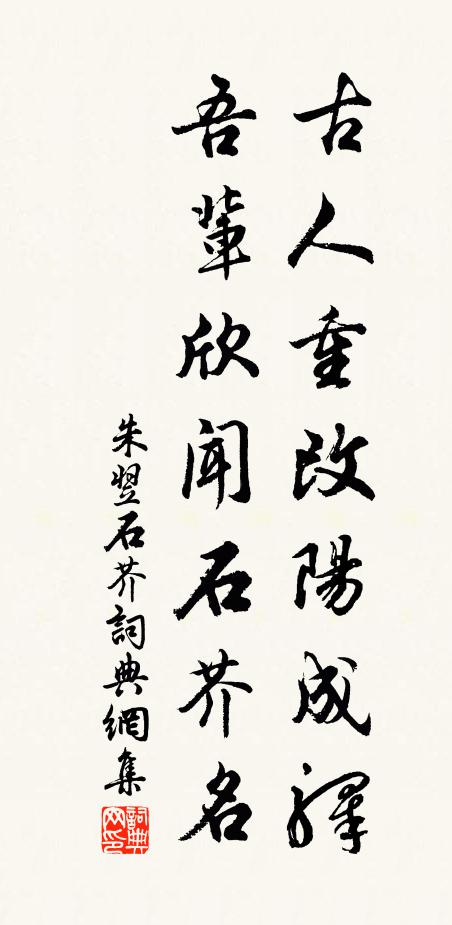 古人重改陽成驛
吾輩欣聞石芥名
朱翌石芥詞典網集
詞典網印